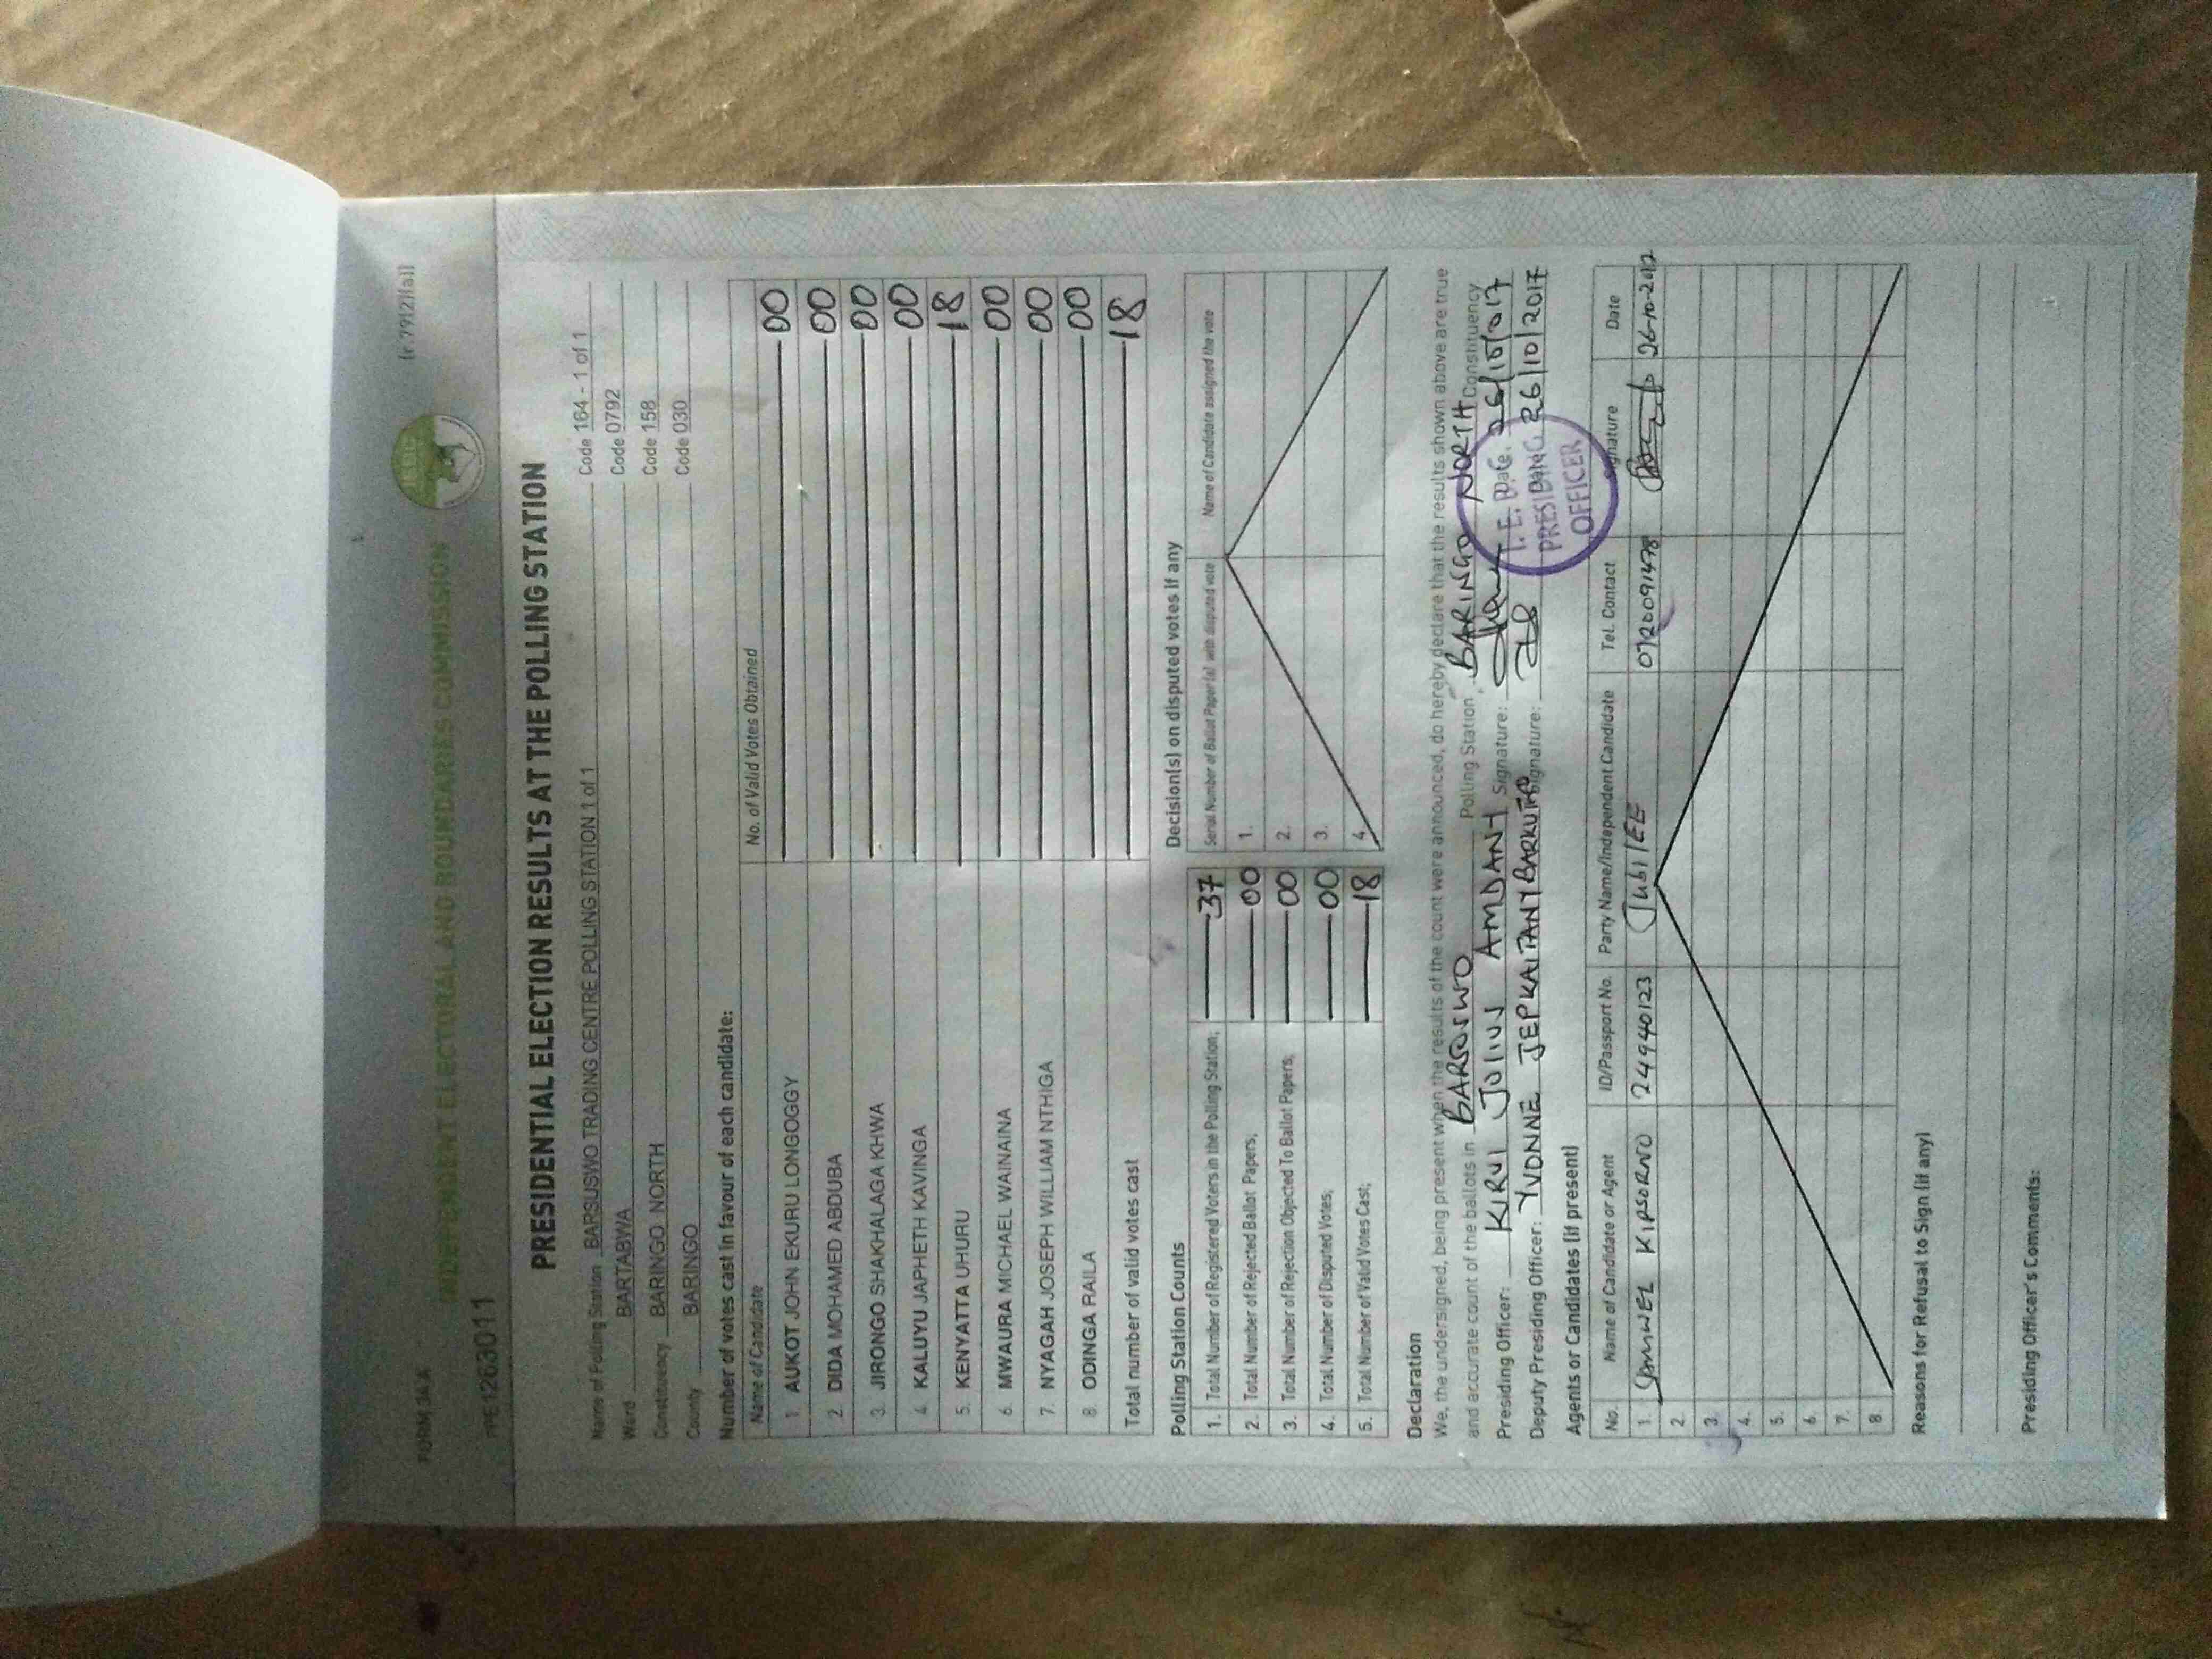 FORM 34A (r.79(2)(a))
INDEPENDENT ELECTORAL AND BOUNDARIES COMMISSION
IEBC
PRESIDENTIAL ELECTION RESULTS AT THE POLLING STATION
Name of Polling Station BARSUSWO TRADING CENTRE POLLING STATION 1 of 1 Code 164 - 1 of 1
Ward BARTABWA Code 0792
Constituency BARINGO NORTH Code 158
County BARINGO Code 030
Number of votes cast in favour of each candidate:
Name of Candidate No. of Valid Votes Obtained
1. AUKOT JOHN EKURU LONGOGGY 00
2. DIDA MOHAMED ABDUBA 00
3. JIRONGO SHAKHALAGA KHWA 00
4. KALUYU JAPHETH KAVINGA 00
5. KENYATTA UHURU 18
6. MWAURA MICHAEL WAINAINA 00
7. NYAGAH JOSEPH WILLIAM NTHIGA 00
8. ODINGA RAILA 00
Total number of valid votes cast 18
Polling Station Counts
1. Total Number of Registered Voters in the Polling Station; 37
2. Total Number of Rejected Ballot Papers; 00
3. Total Number of Rejection Objected To Ballot Papers; 00
4. Total Number of Disputed Votes; 00
5. Total Number of Valid Votes Cast; 18
Decision(s) on disputed votes if any
Serial Number of Ballot Paper(s) with disputed vote Name of Candidate assigned the vote
1.
2.
3.
4.
Declaration
We, the undersigned, being present when the results of the count were announced, do hereby declare that the results shown above are true
and accurate count of the ballots in BARSUSWO Polling Station, BARINGO NORTH Constituency
Presiding Officer: KIRUI JULIUS AMDANY Signature: Date. 26/10/2017
Deputy Presiding Officer: YVONNE JEPKAITANY BARKUTO Signature: Date 26/10/2017
I.E.B.C.
PRESIDING
OFFICER
Agents or Candidates (if present)
No. Name of Candidate or Agent ID/Passport No. Party Name/Independent Candidate Tel. Contact Signature Date
1. SAMWEL KIPSORNO 24940123 JubilEE 0720091478 26-10-2017
2.
3.
4.
5.
6.
7.
8.
Reasons for Refusal to Sign (if any)
Presiding Officer's Comments: